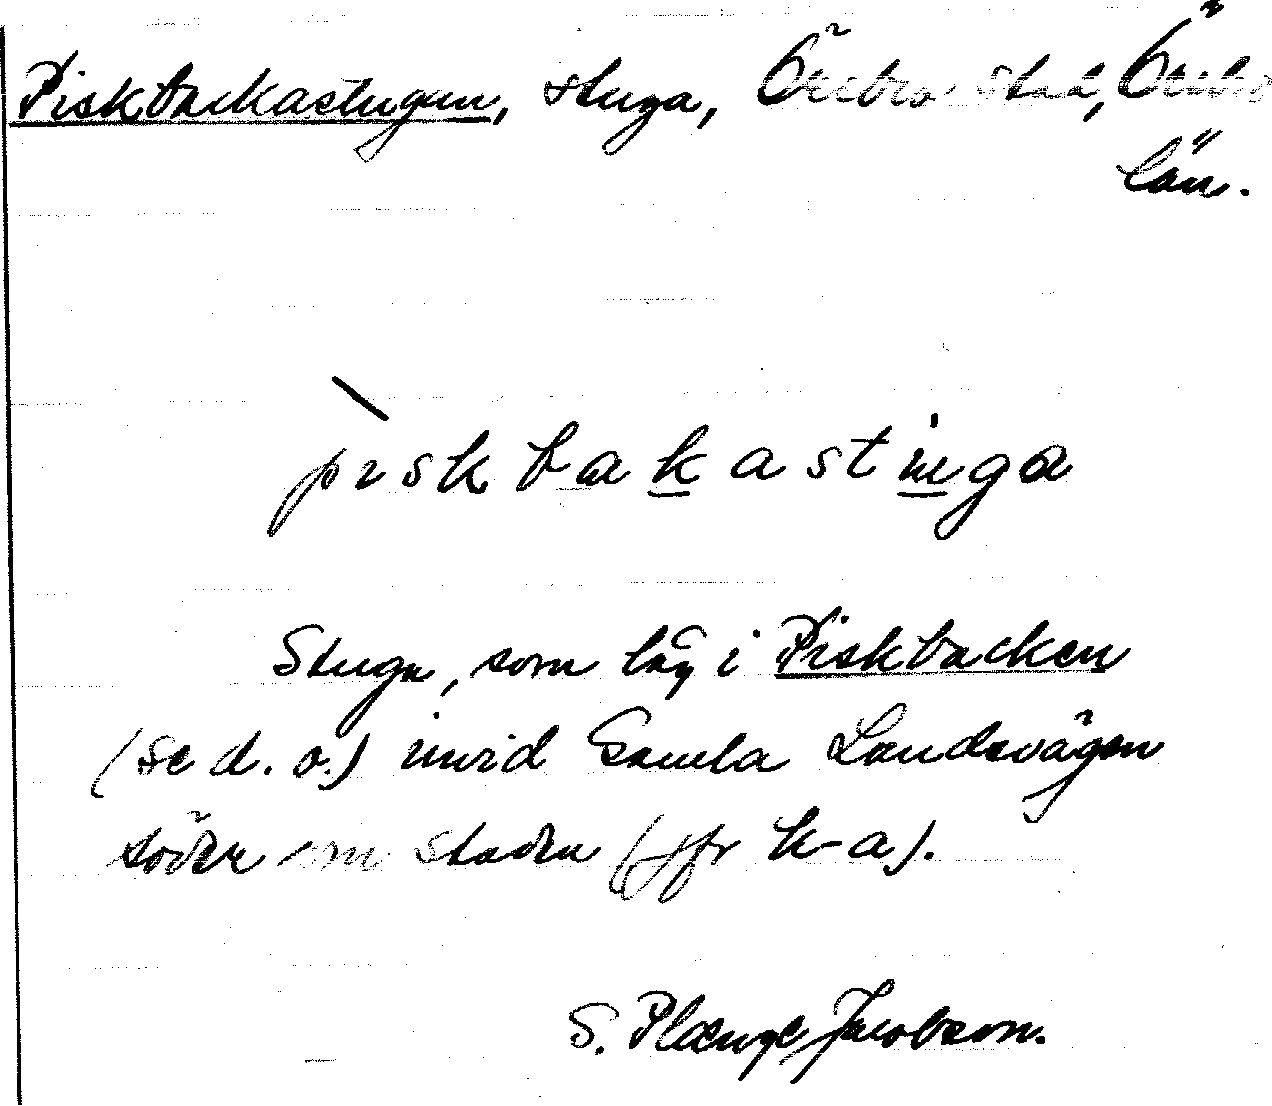 Piskbackastugan, stuga, Örebro stad, Örebro
län.
piskbakastuga
Stuga, som låg i Piskbacken
(se d. o.) invid Gamla Landsvägen
söder om staden (jfr k-a).
S. Plænge Jacobson.